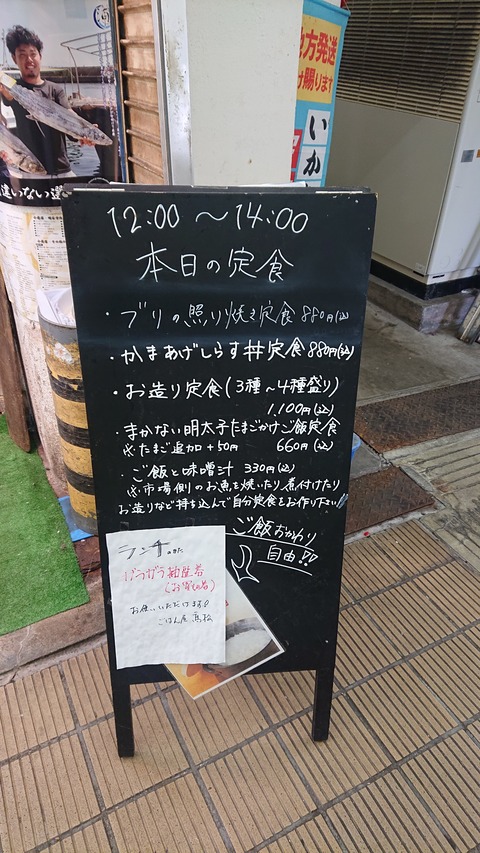 地方発送
け賜ります
いか
違いない選
12:00 〜14:00
本日の定食
・ブリの照り焼き定食 880円(込)
・かまあげしらす丼定食 880円(込)
・お造り定食(3種〜4種盛り)
1,100円(込)
・まかない明太子たまごかけご飯定食
※たまご追加+50円 660円(込)
・ご飯と味噌汁 330円(込)
※市場側のお魚を焼いたり煮付けたり
お造りなど持ち込んで自分定食をお作り下さい
ご飯おかわり
自由!!
ランチのかた
お使いいただけます!
ごはん屋 高松